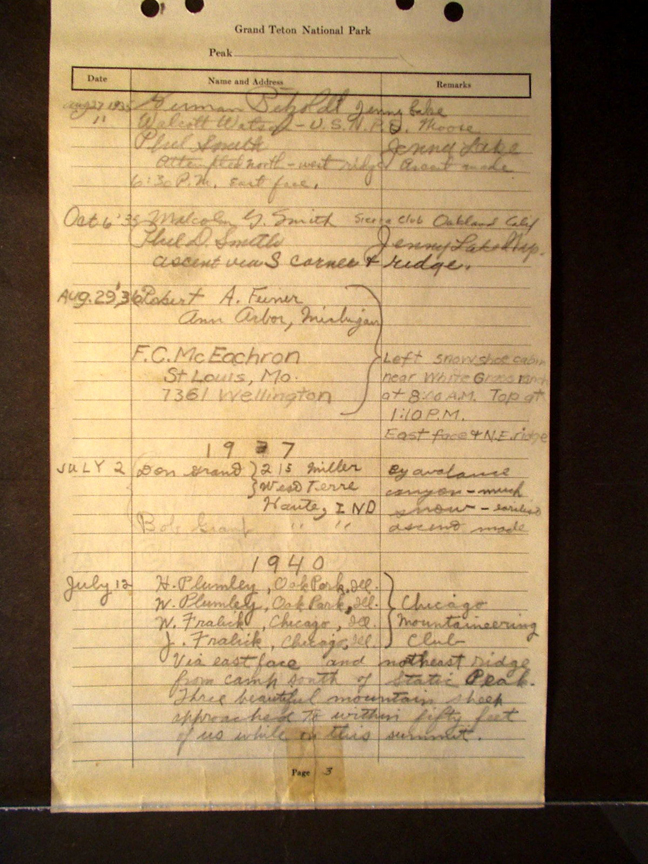 Grand Teton National Park
Peak
Date Name and Address Remarks
Aug 27 1935 Herman Petzoldt Jenny Lake
" Walcott Watson - U.S.N.P.S. Moose
Phil Smith Jenny Lake
north-west ridge Ascent made
6:30 P.M. east face.
Oct 6 '35 Malcolm G. Smith Sierra Club Oakland Calif
Phil D. Smith Jenny Lake Wyo.
ascent via S corner & ridge.
Aug. 29, '36 Robert A.
Ann Arbor, Michigan
F.C. McEachron Left snowshoe cabin
St Louis, Mo. near White Grass ranch
7361 Wellington at 8:10 A.M. Top at
1:10 P.M.
East face & N.E. ridge
1937
JULY 2 Don Grand 215 Miller By avalance
West Terre canyon - much
Haute, IND snow - earliest
Bob Grant " " ascend made
1940
July 12 H. Plumley, Oak Park, Ill.
W. Plumley, Oak Park, Ill. Chicago
W. Fralick, Chicago, Ill. Mountaineering
J. Fralick, Chicago, Ill. Club
Via east face and notheast ridge
from camp south of Static Peak.
Three beautiful mountain sheep
approached to within fifty feet
of us while on this summit.
Page 3